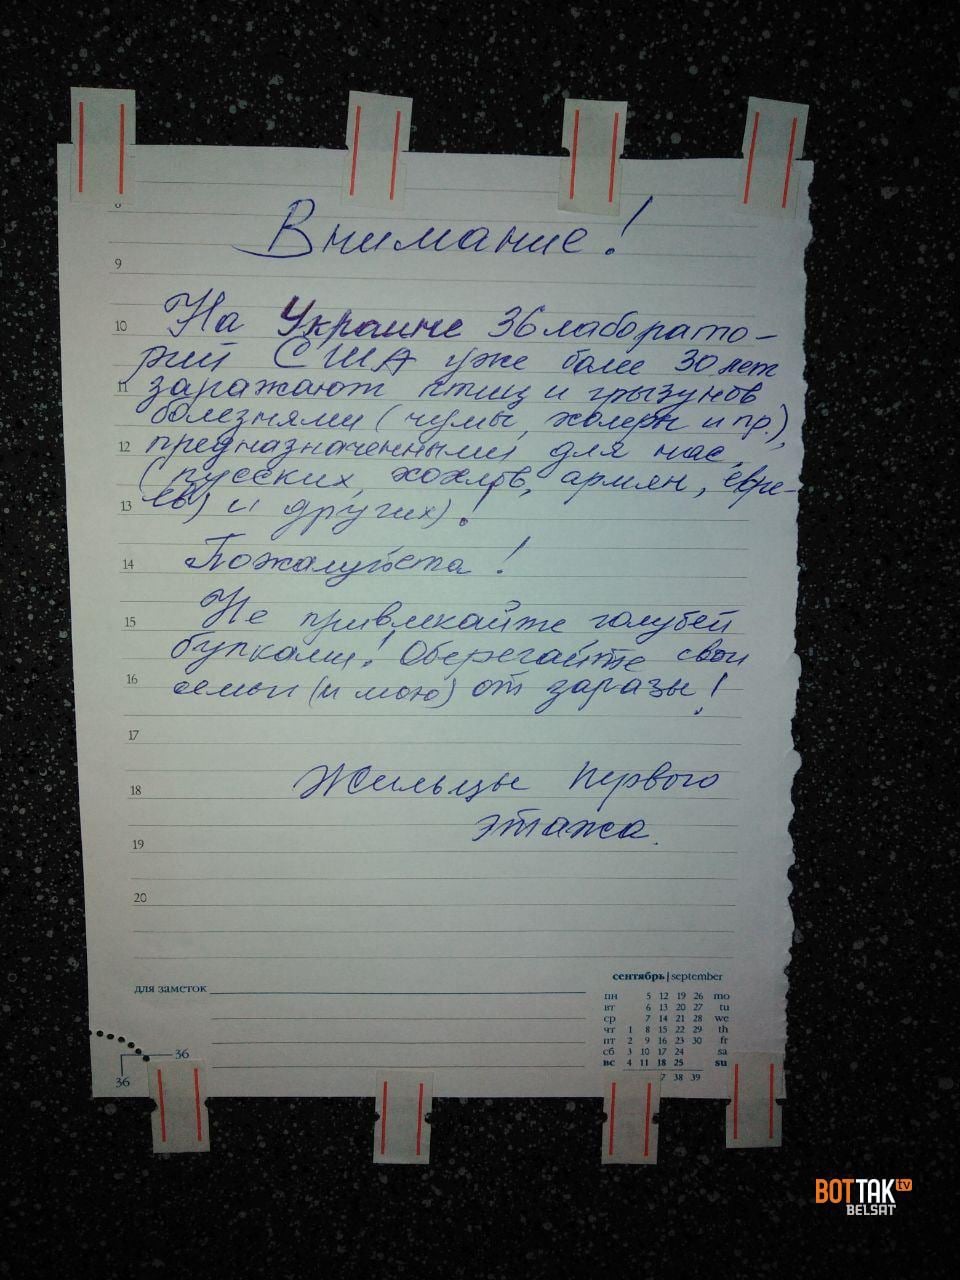 8
Внимание!
9
На Украине 36 лаборато-
10
рий США уже более 30 лет
11
заражают птиц и грызунов
болезнями (чумы, холеры и пр.),
12
предназначенными для нас,
(русских, хохлов, армян, евре-
13
ев) и других)!
14
Пожалуйста!
15
Не привлекайте голубей
булками! Оберегайте свои
16
семьи (и мою) от заразы!
17
18
Жильцы первого
этажа.
19
20
для заметок
сентябрь | september
пн 5 12 19 26 mo
вт 6 13 20 27 tu
ср 7 14 21 28 we
чт 1 8 15 22 29 th
пт 2 9 16 23 30 fr
сб 3 10 17 24 sa
вс 4 11 18 25 su
7 38 39
36
36
ВОТТАК tv
BELSAT